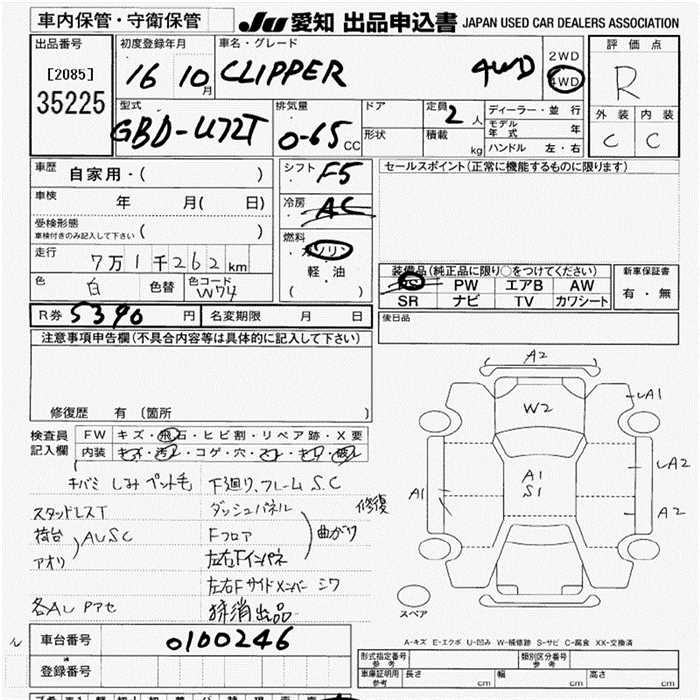 車内保管・守衛保管
JU 愛知 出品申込書 JAPAN USED CAR DEALERS ASSOCIATION
出品番号 初度登録年月 車名・グレード 2WD 評価点
[2085] 16 10月 CLIPPER 4WD 4WD R
35225 型式 排気量 ドア 定員 2人 ディーラー・並行 外装 内装
GBD-U72T 0-65 CC 形状 積載 kg モデル年式 年 C C
ハンドル 左・右
車歴 自家用・( ) シフト F5 セールスポイント(正常に機能するものに限ります)
車検 年 月( 日) 冷房 AC
受検形態 車検付きのみ記入して下さい ( ) 燃料 ガソリン
走行 7万1千262km 軽油 装備品(純正品に限り○をつけてください) 新車保証書
色 白 色替 色コード W74 ( ) PS PW エアB AW 有・無
SR ナビ TV カワシート
R券 5390 円 名変期限 月 日 後日品
注意事項申告欄(不具合内容等は具体的に記入して下さい)
修復歴 有 (箇所 )
A2
A1
W2
A2
A1
S1
A1
A2
スペア
検査員記入欄 FW キズ・飛石・ヒビ割・リペア跡・X要
内装 キズ・汚レ・コゲ・穴・
キバミ しみ ペット毛 下廻り、フレーム S.C
スタッドレスT ダッシュパネル 修復
荷台 AUSC Fフロア 曲がり
アオリ 左右Fインパネ
左右Fサイドメンバーシワ
各AL Pアセ 抹消出品
A-キズ E-エクボ U-凹み W-補修跡 S-サビ C-腐食 XX-交換済
車台番号 0100246
登録番号
形式指定番号 参考 類別区分番号 参考
車庫証明用 参考 長さ cm 幅 cm 高さ cm